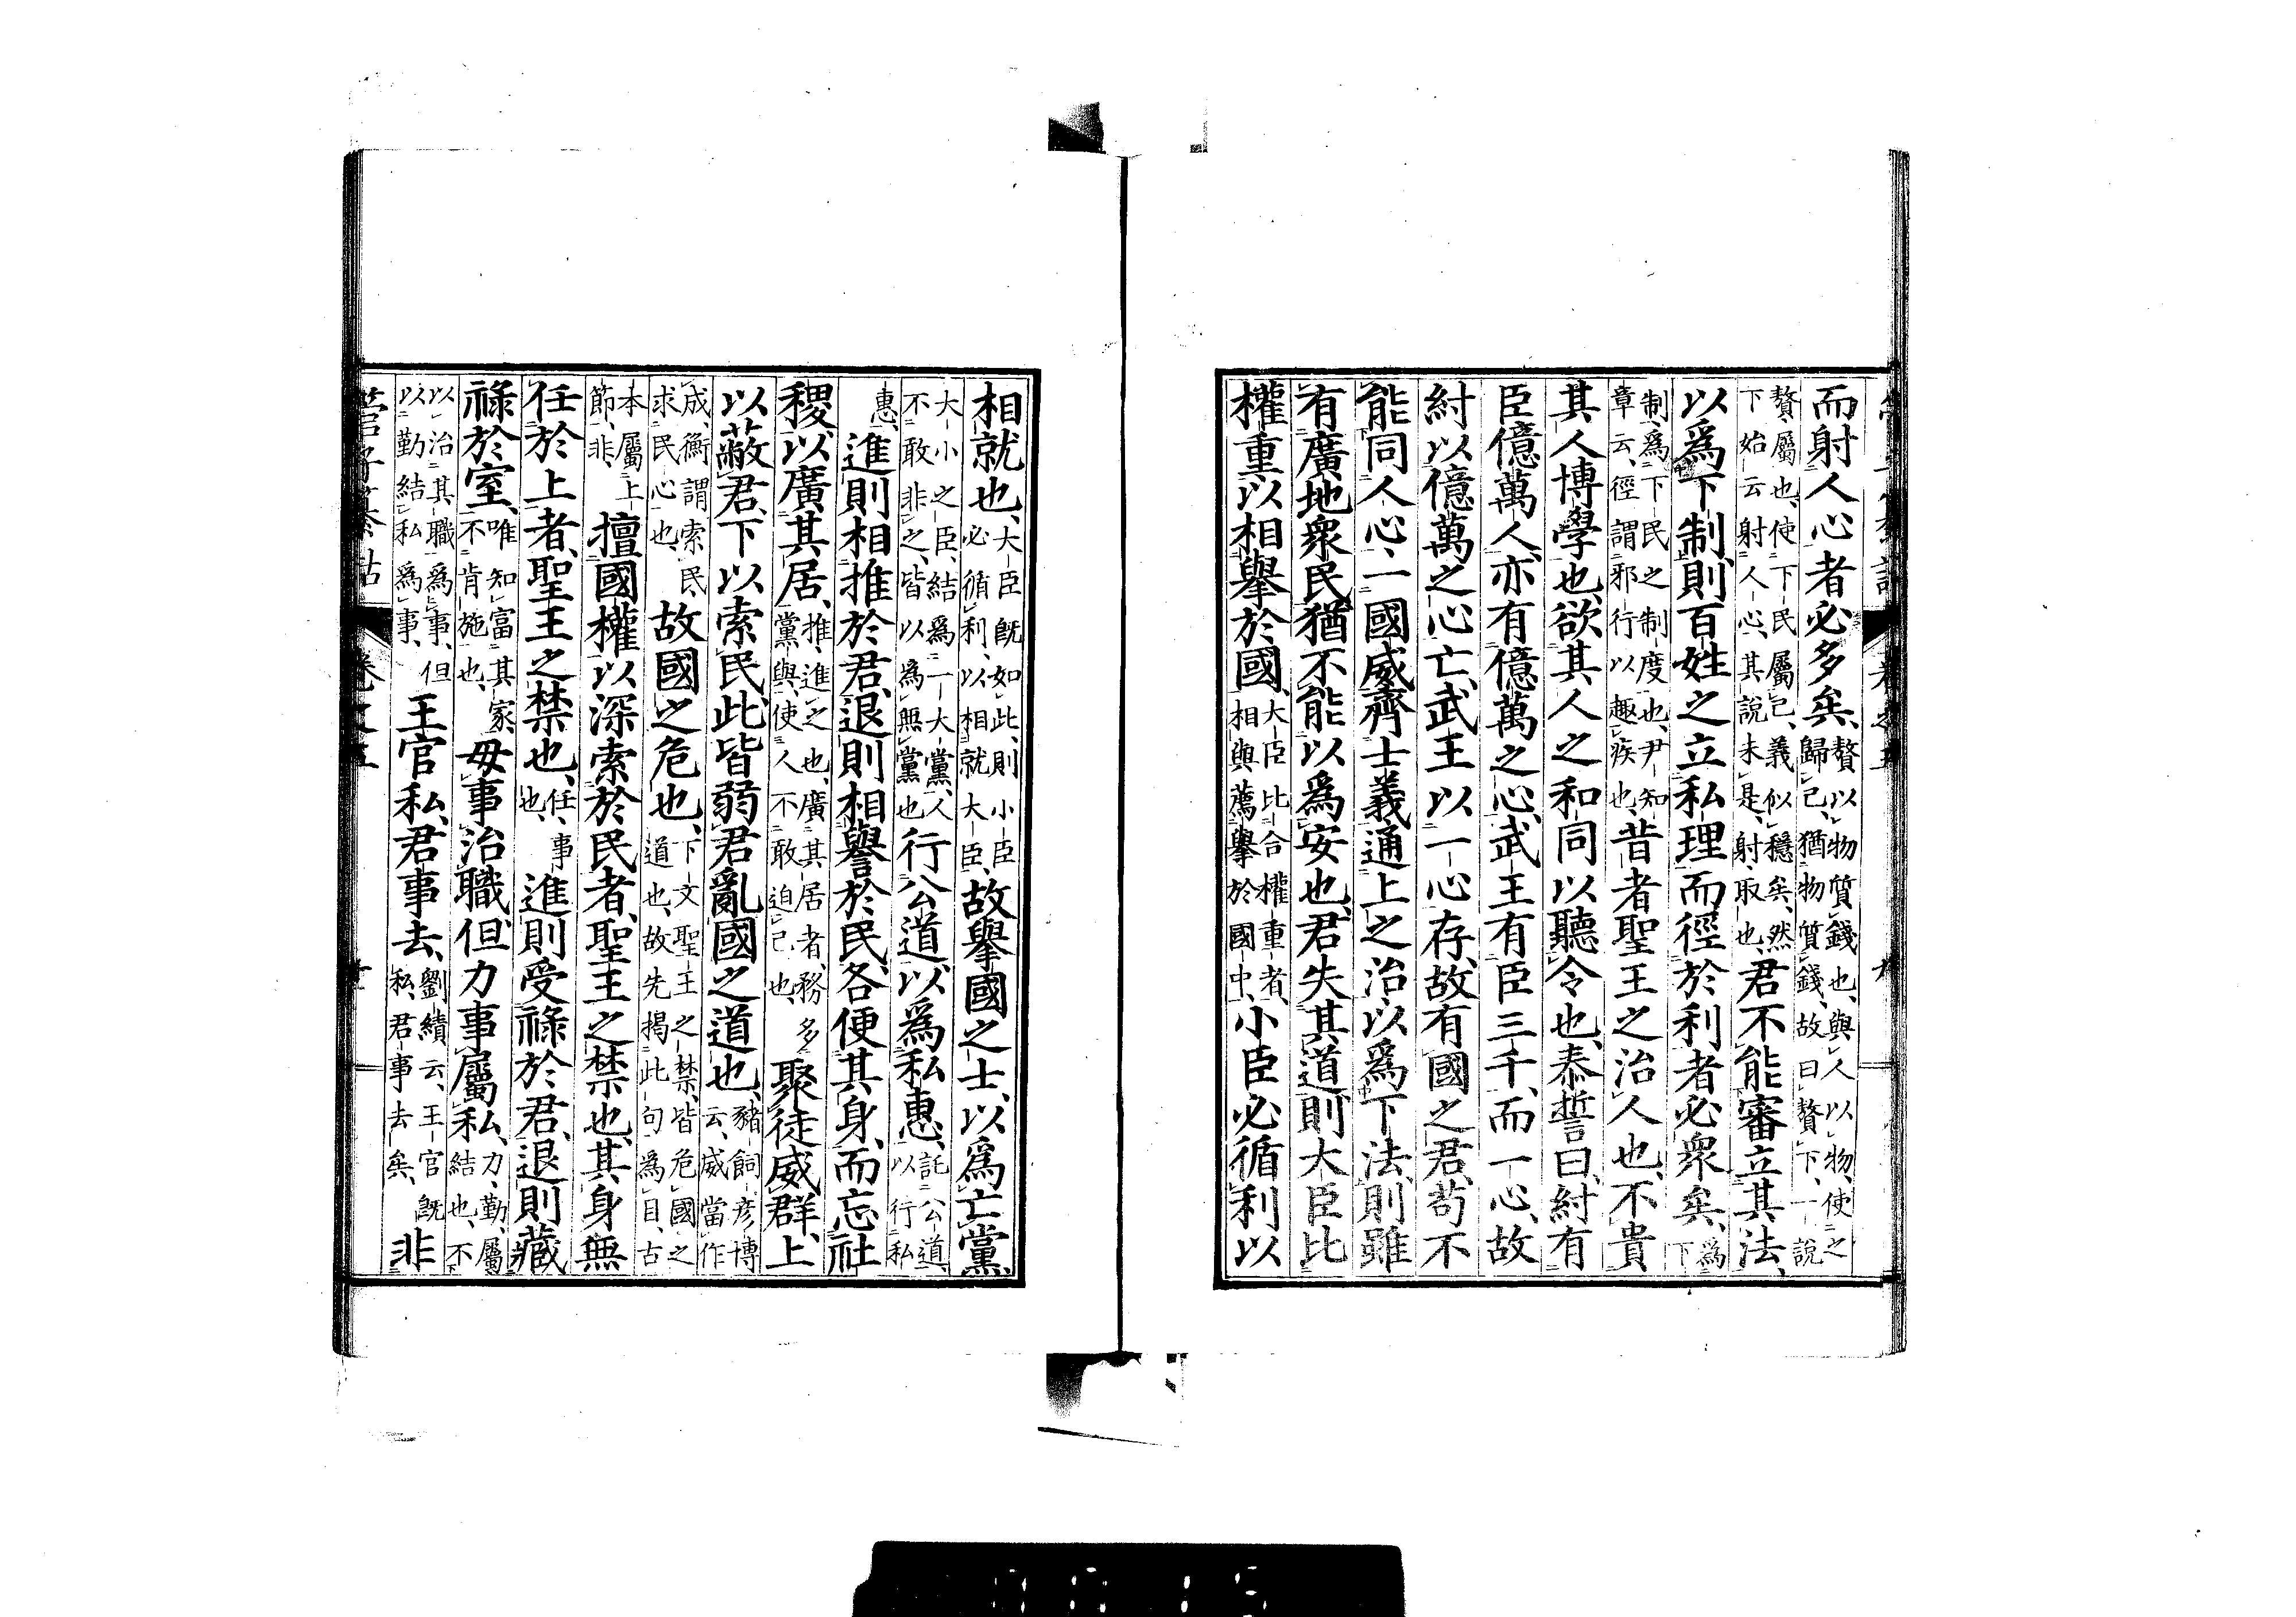 而射人心者必多矣、贅以物質錢也、與人以物、使之歸己、猶物質錢、故曰贅下、一說
贅、屬也、使下民屬己、義似穩矣、然下始云射人心、其說未是、射、取也、君不能審立其法、
以爲下制、則百姓之立私理而徑於利者必衆矣、爲下
制、爲下民之制度也、尹知章云、徑謂邪行以趣疾也、昔者聖王之治人也、不貴
其人博學也、欲其人之和同以聽令也、泰誓曰、紂有
臣億萬人、亦有億萬之心、武王有臣三千、而一心、故
紂以億萬之心亡、武王以一心存、故有國之君、苟不
能同人心、一國威、齊士義、通上之治以爲下法、則雖
有廣地衆民、猶不能以爲安也、君失其道、則大臣比
權重以相舉於國、大臣比合權重者、相與薦舉於國中、小臣必循利以
相就也、大臣既如此、則小臣必循利、以相就大臣、故舉國之士、以爲亡黨、
大小之臣、結爲一大黨、人不敢非之、皆以爲無黨也、行公道、以爲私惠、託公道、以行私
惠、進則相推於君、退則相譽於民、各便其身、而忘社
稷、以廣其居、推、進之也、廣其居者、務多黨與、使人不敢迫己也、聚徒威群、上
以蔽君、下以索民、此皆弱君亂國之道也、豬飼彥博云、威當作
成、衡謂索民、求民心也、故國之危也、下文聖王之禁、皆危國之道也、故先揭此句爲目、古
本屬上節、非、擅國權以深索於民者、聖王之禁也、其身無
任於上者、聖王之禁也、任、事也、進則受祿於君、退則藏
祿於室、唯知富其家、不肯施也、毋事治職、但力事屬私、力、勤、屬、結也、不
以治其職爲事、但以勤結私爲事、王官私、君事去、劉績云、王官既私、君事去矣、非
管子纂詁 卷之五 十